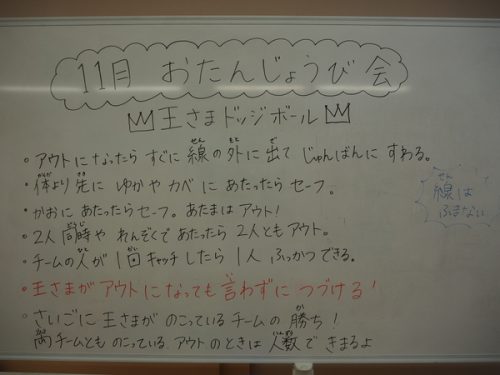 11月 おたんじょうび会
王さまドッジボール
・アウトになったら すぐに 線の外に出て じゅんばんに すわる。
・体より先に ゆかや カベに あたったら セーフ。
・かおに あたったらセーフ。あたまは アウト!
・2人同時や れんぞくで あたったら 2人とも アウト。
・チームの人が 1回キャッチしたら 1人 ふっかつできる。
・王さまが アウトになっても 言わずに つづける!
・さいごに 王さまが のこっている チームの 勝ち!
両チームとも のこっている アウトの ときは 人数で きまるよ
線は
ふまない